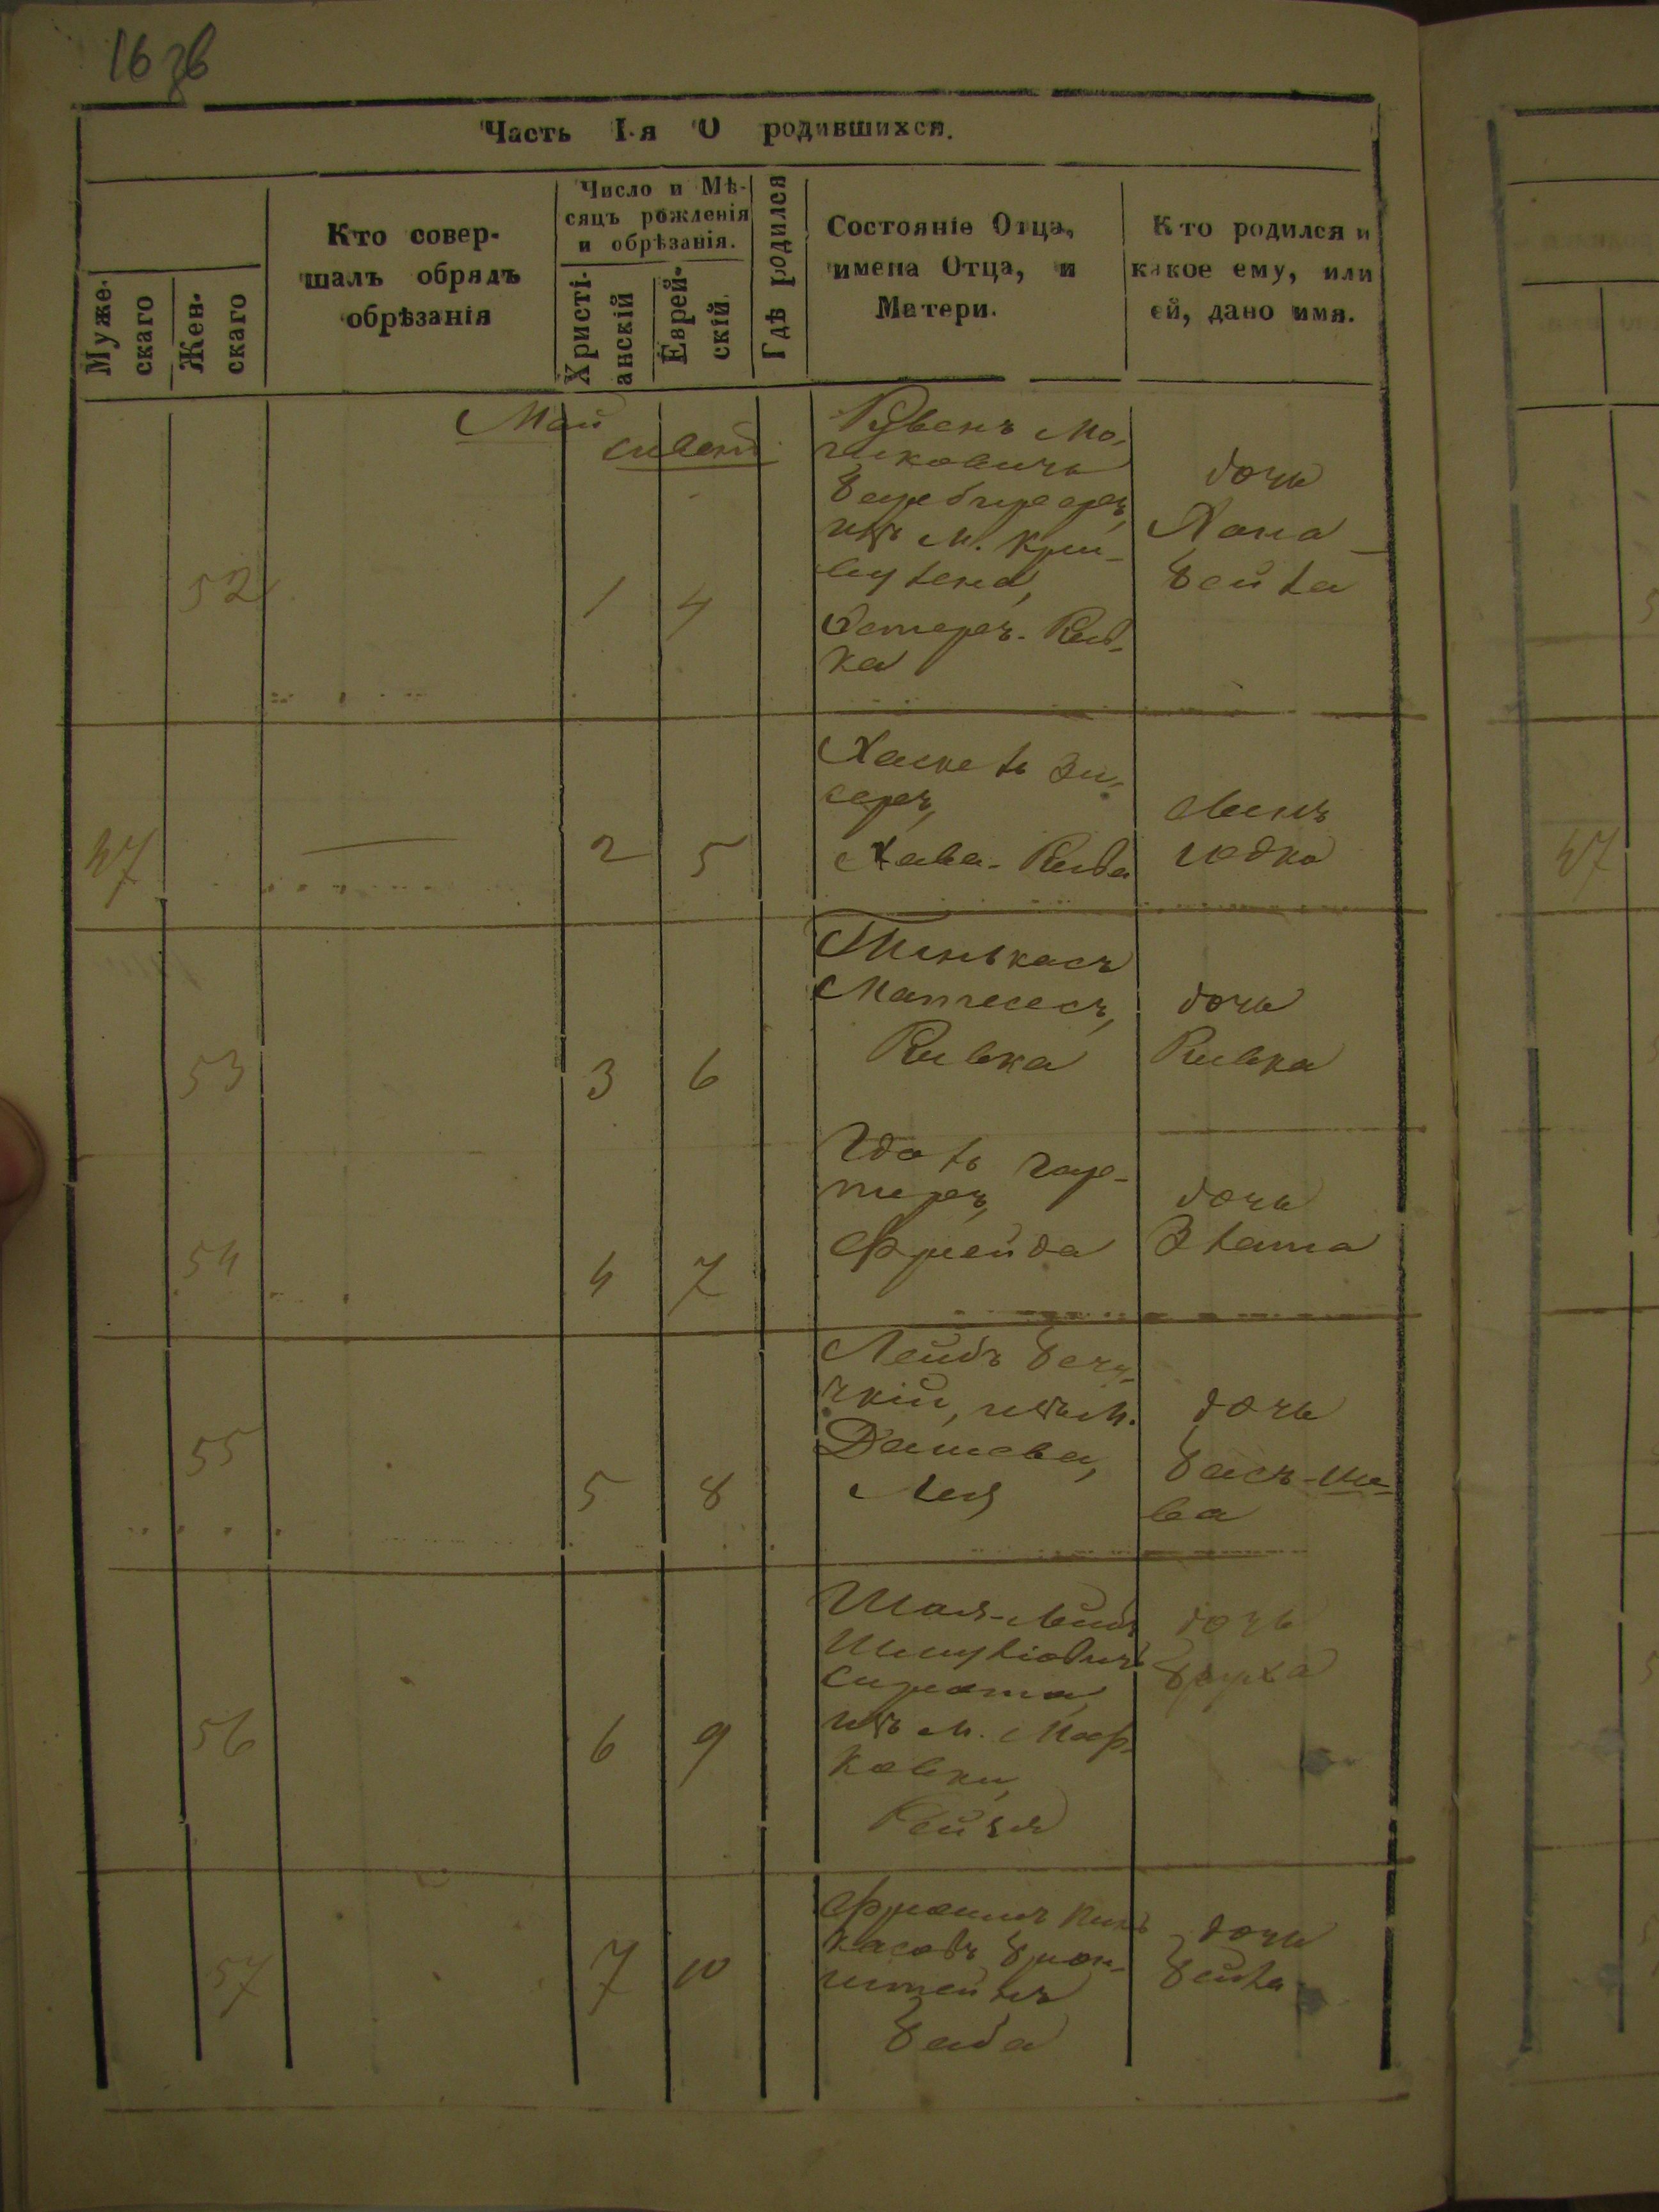 16 зв
Часть I-я О родившихся.
Муже-
скаго
Жен-
скаго
Кто совер-
шалъ обрядъ
обрѣзанія
Число и Мѣ-
сяцъ рожденія
и обрѣзанія.
Христі-
анскій
Еврей-
скій.
Гдѣ родился
Состояніе Отца,
имена Отца, и
Матери.
Кто родился и
какое ему, или
ей, дано имя.
Май
сивенъ
52
1
4
Рувенъ Мо-
из м. Кри-
Эстеръ-Рив-
ка
дочь
Хана-
Бейла
47
2
5
Хаскель Зи-
серъ,
Хава-Рив
сынъ
53
3
6
Пинькасъ
Ривка
дочь
Ривка
54
4
7
Фрейда
дочь
Злата
55
5
8
Лейбъ
изъ м.
Дашева,
Лея
дочь
Басъ-ше-
ва
56
6
9
Шая-Лейбъ
Шмулiовичъ
Сирота,
изъ м. Мар-
ковки,
Рейзя
дочь
Бруха
57
7
10
Фроимъ Пинь-
касовъ Брон-
штейнъ
Баба
дочь
Бейла
47